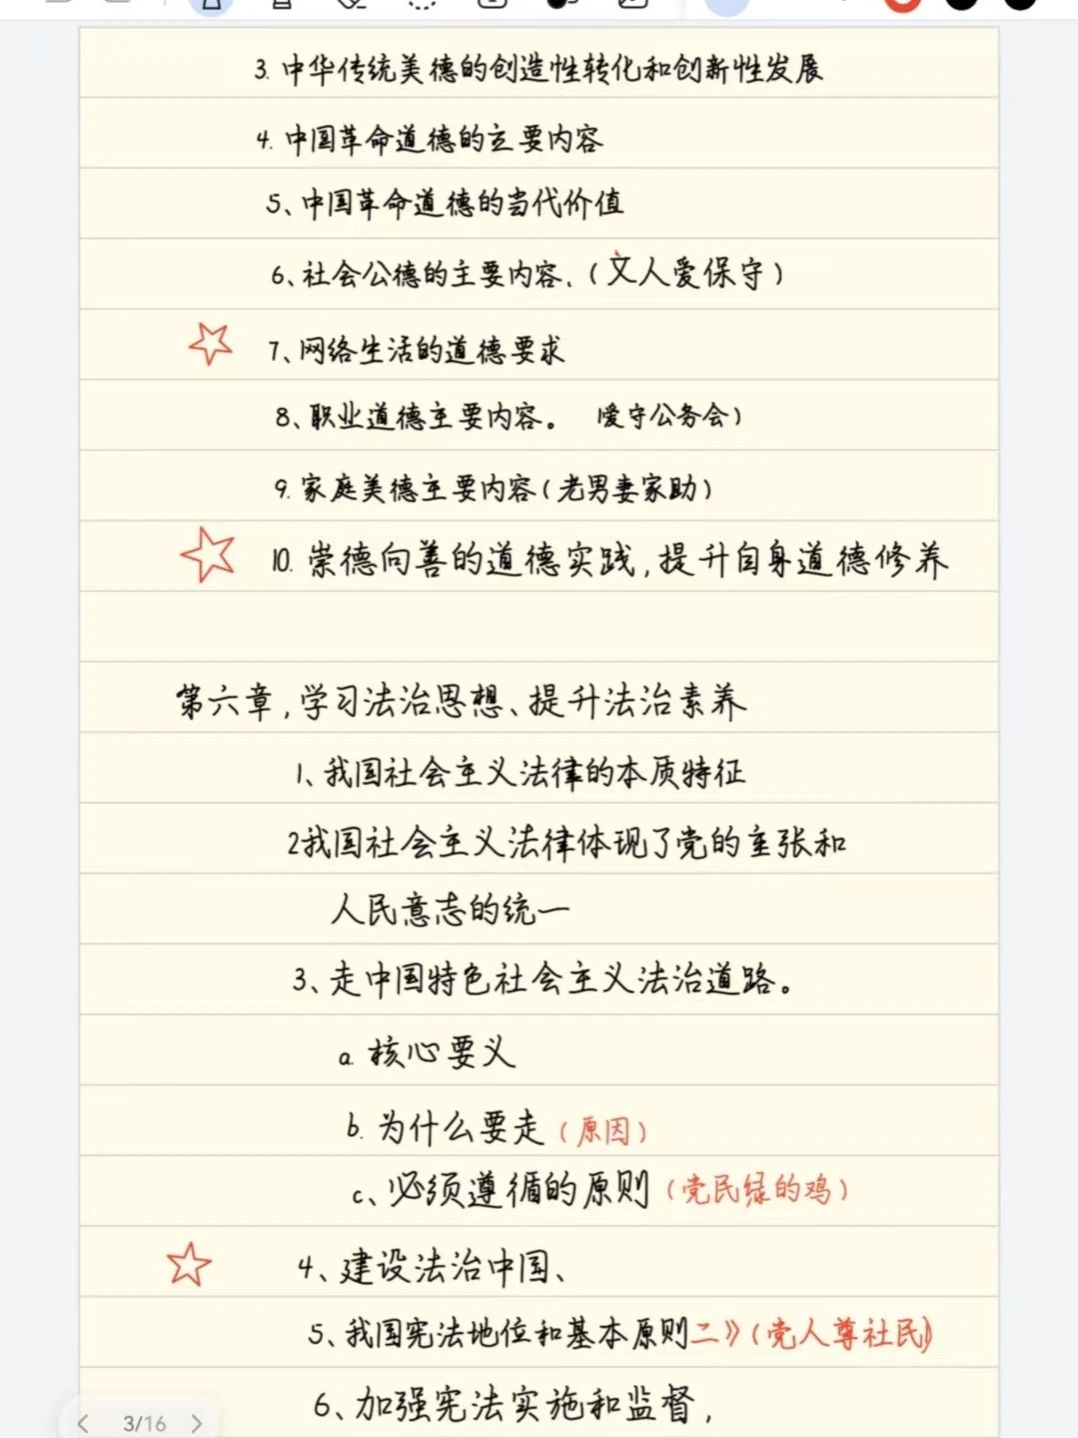 3. 中华传统美德的创造性转化和创新性发展
4. 中国革命道德的主要内容
5、中国革命道德的当代价值
6、社会公德的主要内容、(文人爱保守)
7、网络生活的道德要求
8、职业道德主要内容。 (爱守公务会)
9. 家庭美德主要内容(老男妻家助)
10. 崇德向善的道德实践,提升自身道德修养
第六章,学习法治思想、提升法治素养
1、我国社会主义法律的本质特征
2我国社会主义法律体现了党的主张和
人民意志的统一
3、走中国特色社会主义法治道路。
a. 核心要义
b. 为什么要走(原因)
c、必须遵循的原则(党民绿的鸡)
4、建设法治中国、
5、我国宪法地位和基本原则二》(党人尊社民)
6、加强宪法实施和监督,
3/16